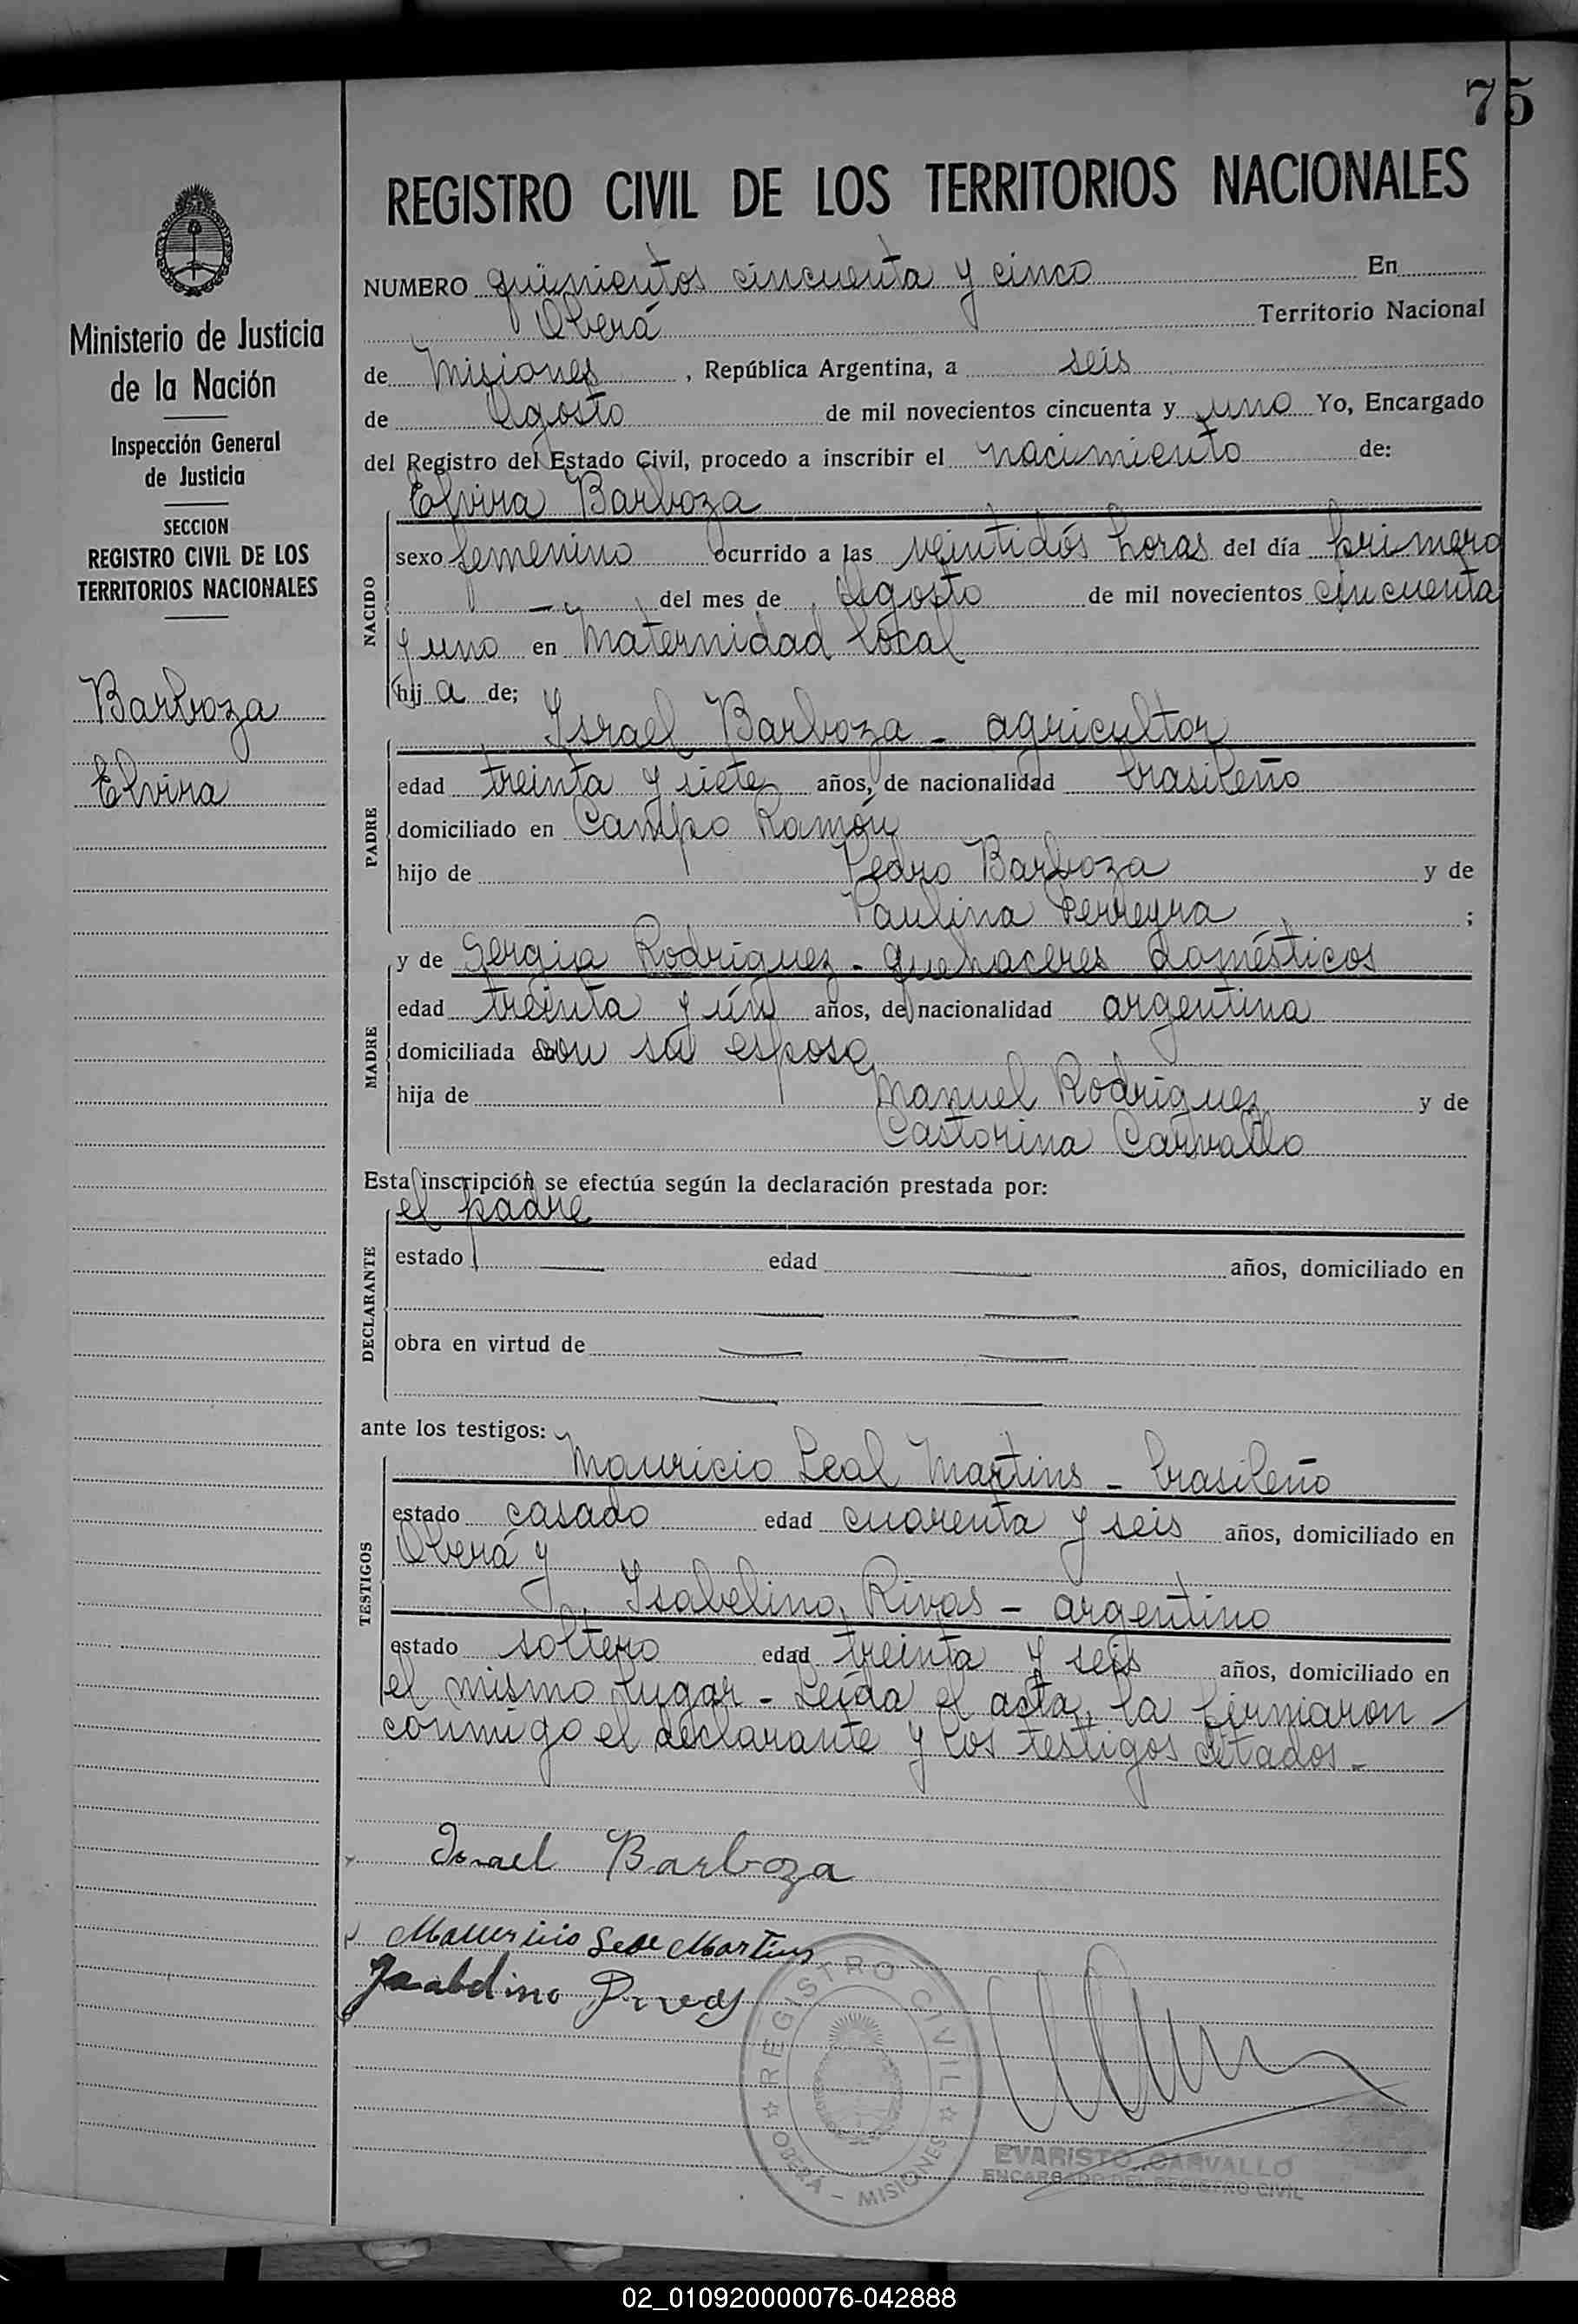 75
REGISTRO CIVIL DE LOS TERRITORIOS NACIONALES
Ministerio de Justicia
de la Nación
Inspección General
de Justicia
SECCION
REGISTRO CIVIL DE LOS
TERRITORIOS NACIONALES
Barboza
Elvira
NUMERO quinientos cincuenta y cinco En
Oberá Territorio Nacional
de Misiones, República Argentina, a seis
de Agosto de mil novecientos cincuenta y uno Yo, Encargado
del Registro del Estado Civil, procedo a inscribir el nacimiento de:
Elvira Barboza
NACIDO
sexo femenino ocurrido a las veintidós horas del día primero
— del mes de Agosto de mil novecientos cincuenta
y uno en Maternidad local
hija de;
Israel Barboza - agricultor
PADRE
edad treinta y siete años, de nacionalidad brasileño
domiciliado en Campo Ramón
hijo de Pedro Barboza y de
Paulina Perreyra ;
y de Sergia Rodríguez - quehaceres domésticos
MADRE
edad treinta y ún años, de nacionalidad argentina
domiciliada con su esposo
hija de Manuel Rodríguez y de
Castorina Carvallo
Esta inscripción se efectúa según la declaración prestada por:
el padre
DECLARANTE
estado — edad — años, domiciliado en
— —
obra en virtud de — —
— —
ante los testigos:
Mauricio Leal Martins - brasileño
TESTIGOS
estado casado edad cuarenta y seis años, domiciliado en
Oberá y
Isabelino Rivas - argentino
estado soltero edad treinta y seis años, domiciliado en
el mismo lugar - Leída el acta, la firmaron -
conmigo el declarante y los testigos citados -
Israel Barboza
Mauricio Leal Martins
Isabelino Rivas
REGISTRO CIVIL
OBERÁ - MISIONES
EVARISTO CARVALLO
ENCARGADO DEL REGISTRO CIVIL
02_010920000076-042888